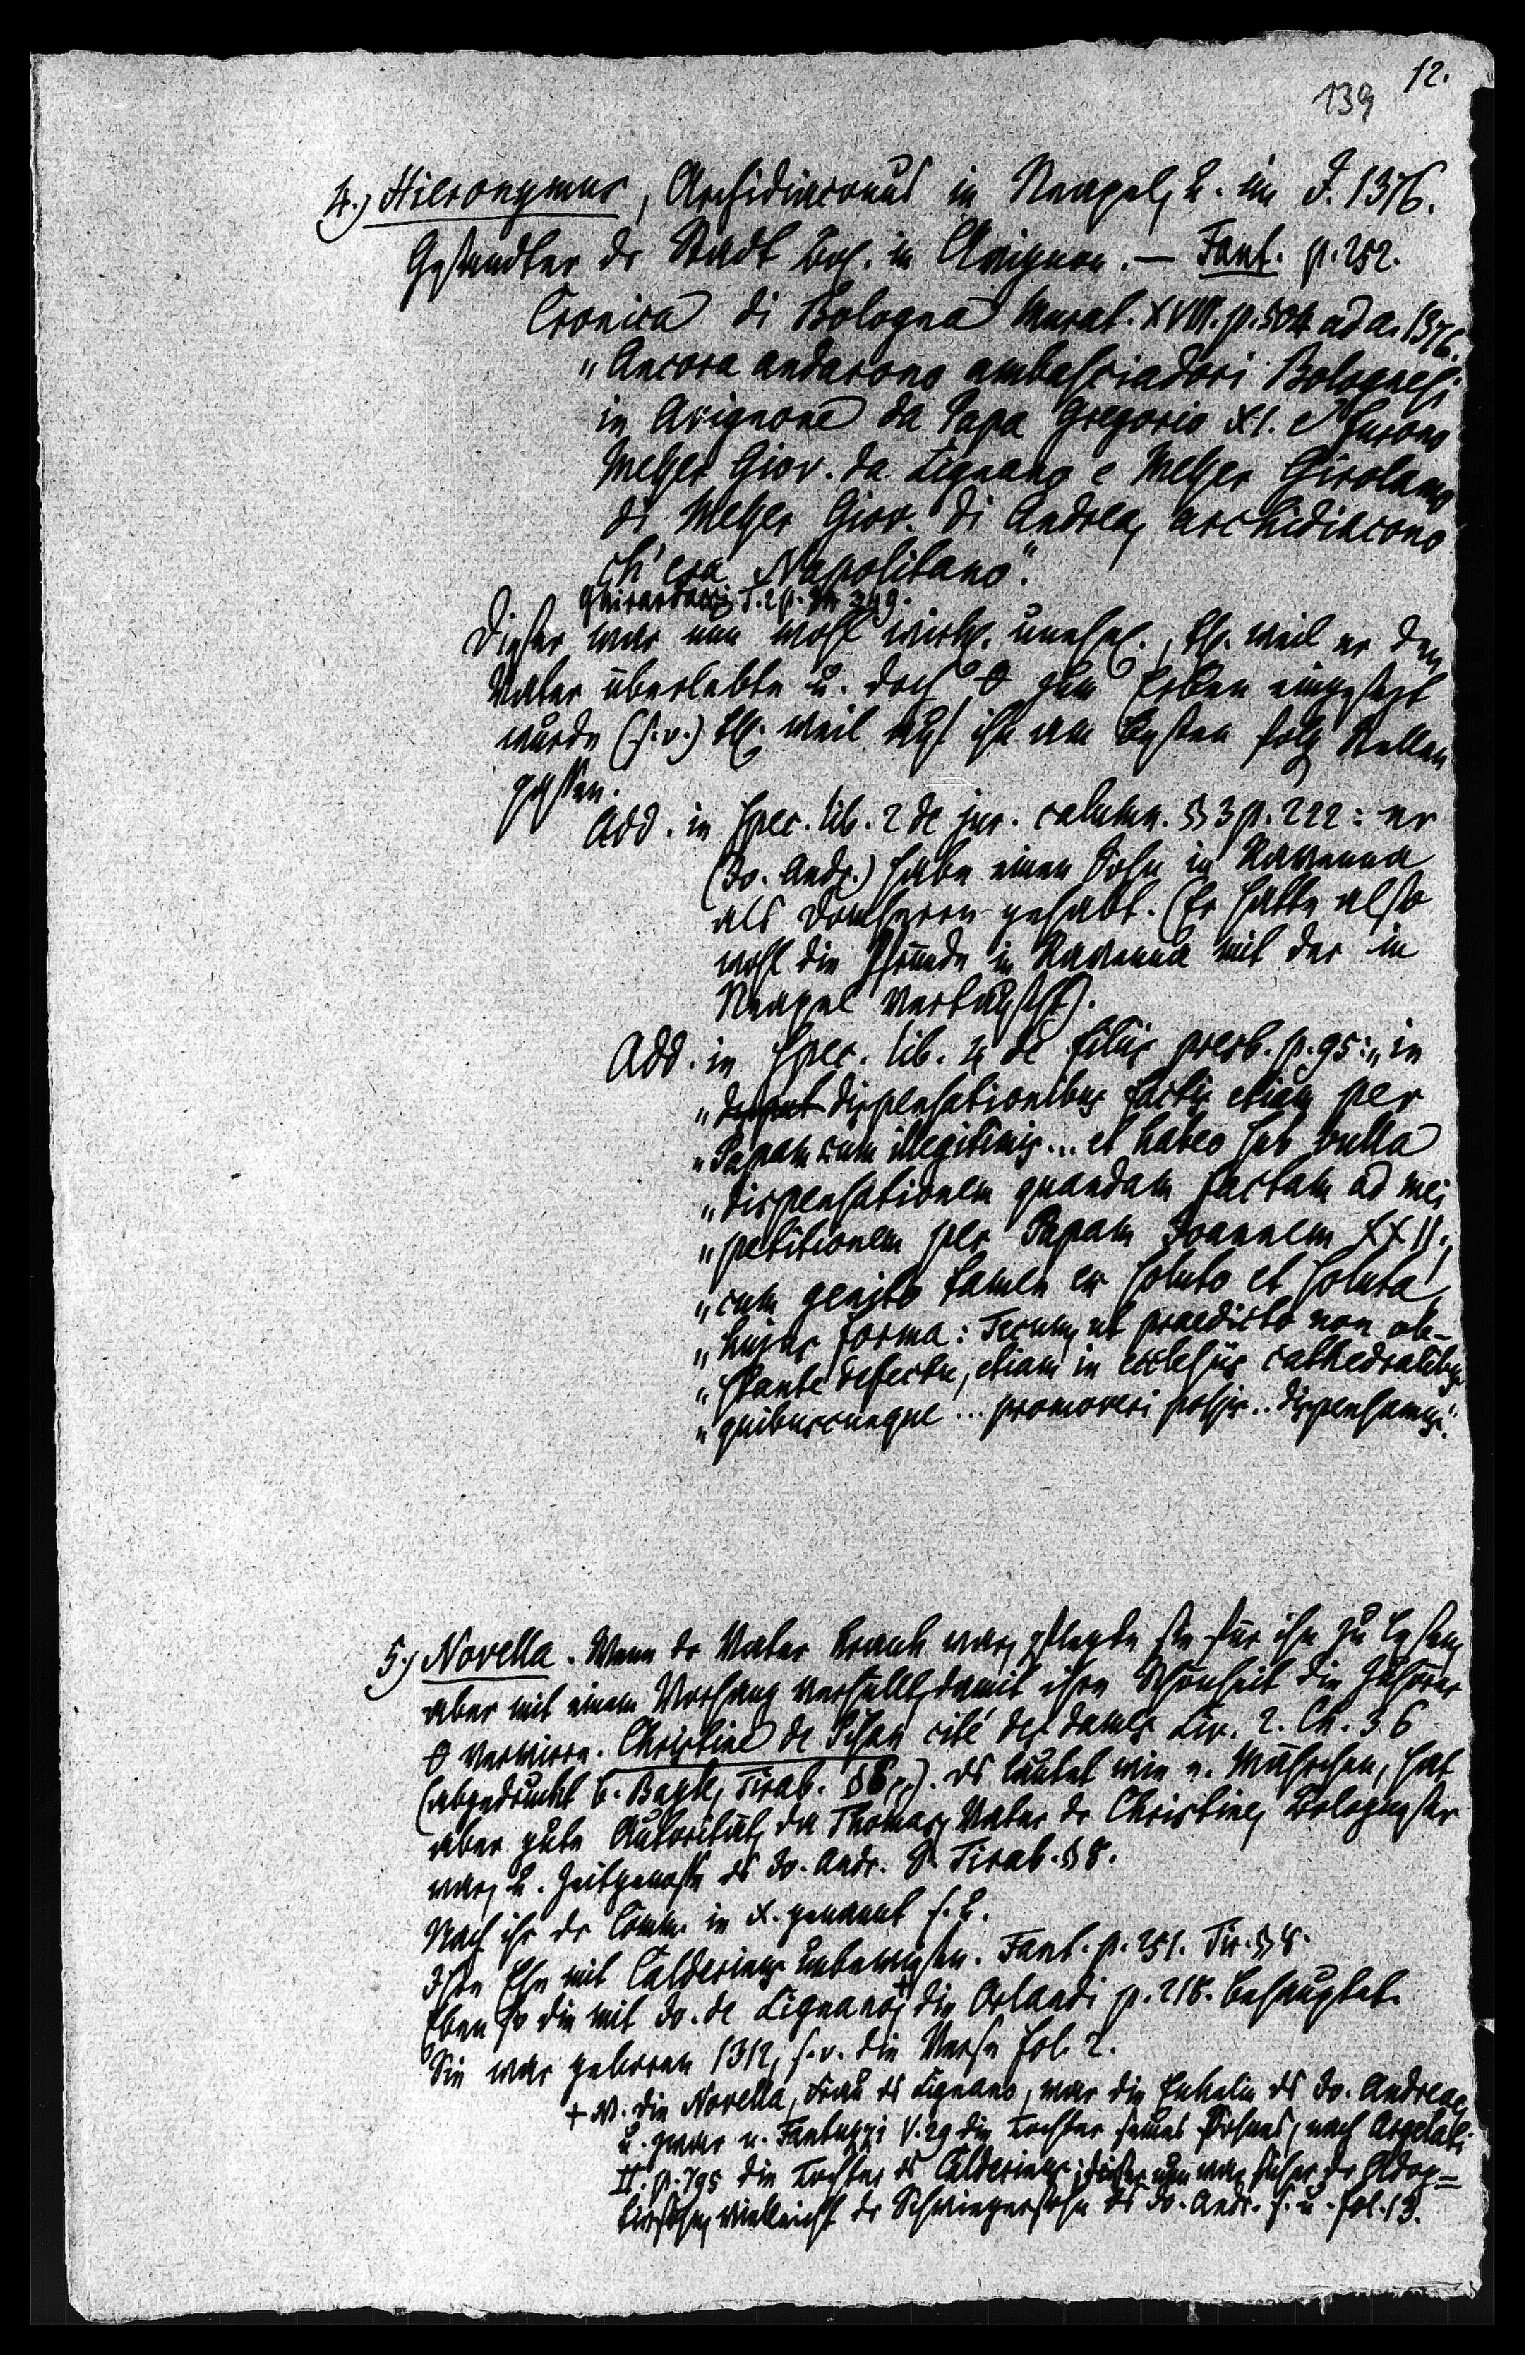 12.
139
4.) Hieronymus, Archidiaconus in Neapel, u. im J. 1376.
Gesandter der Stadt Bol. in Avignon. — Fant. p. 252.
Cronica di Bologna Murat. XVIII. p. 504 ad a. 1376.
„Ancora andarono ambasciadori Bolognesi
in Avignone da Papa Gregorio XI. e furono
Messer Giov. da Lignano e Messer Girolamo
di Messer Giov. di Andrea, archidiacono
ch'era Napolitano“.
Ghirardacci T. 2 p. 349.
Dieser war nun wohl wirkl. unehel., ths. weil er den
Vater überlebte u. doch 0 zum Erben eingesetzt
wurde (s. o.) ths. weil auf ihn am besten folg. Stellen
passen.
Add. in Spec. lib. 2 de jur. calumn. § 3 p. 222: er
(Jo. Andr.) habe einen Sohn in Ravenna
als Domherrn gehabt. (Er hatte also
wohl die Pfründe in Ravenna mit der in
Neapel vertauscht).
Add. in Spec. lib. 4 de filiis presb. p. 95: „in
„dispensationibus factis etiam per
„Papam cum illegitimis... et habeo sub bulla
„dispensationem quandam factam ad mei
„petitionem per Papam Joannem XXII.,
„cum genito tamen ex soluto et soluta,
„hujus forma: Tecum, ut praedicto non ob-
„stante defectu, etiam in ecclesiis cathedralibus
„quibuscunque ... promoveri possis .. dispensamus“.
5.) Novella. Wenn der Vater krank war, pflegte sie für ihn zu lesen,
aber mit einem Vorhang verhüllt, damit ihre Schönheit die Zuhörer
0 verwirre. Christine de Pisan cité des dames Liv. 2. Ch. 36
(abgedruckt b. Bayle, Tirab. § 8). Es lautet wie e. Mährchen, hat
aber gute Autorität, da Thomas, Vater der Christine, Bologneser
war, u. Zeitgenosse des Jo. Andr. S. Tirab. § 8.
Nach ihr der Comm. in X. genannt s. u.
Ihre Ehe mit Calderinus unbewiesen. Fant. p. 251. Tir. § 8.
Eben so die mit Jo. de Lignano,+ die Orlandi p. 218. behauptet.
Sie war geboren 1312, s. o. die Verse fol. 2.
+ NB. die Novella, Frau des Lignano, war die Enkelin des Jo. Andreae,
u. zwar n. Fantuzzi V. 29 die Tochter seines Sohnes, nach Argelati
II. p. 795 die Tochter des Calderinus; dieser nun war sicher der Adop-
tivsohn, vielleicht der Schwiegersohn des Jo. Andr. s. u. fol. 13.